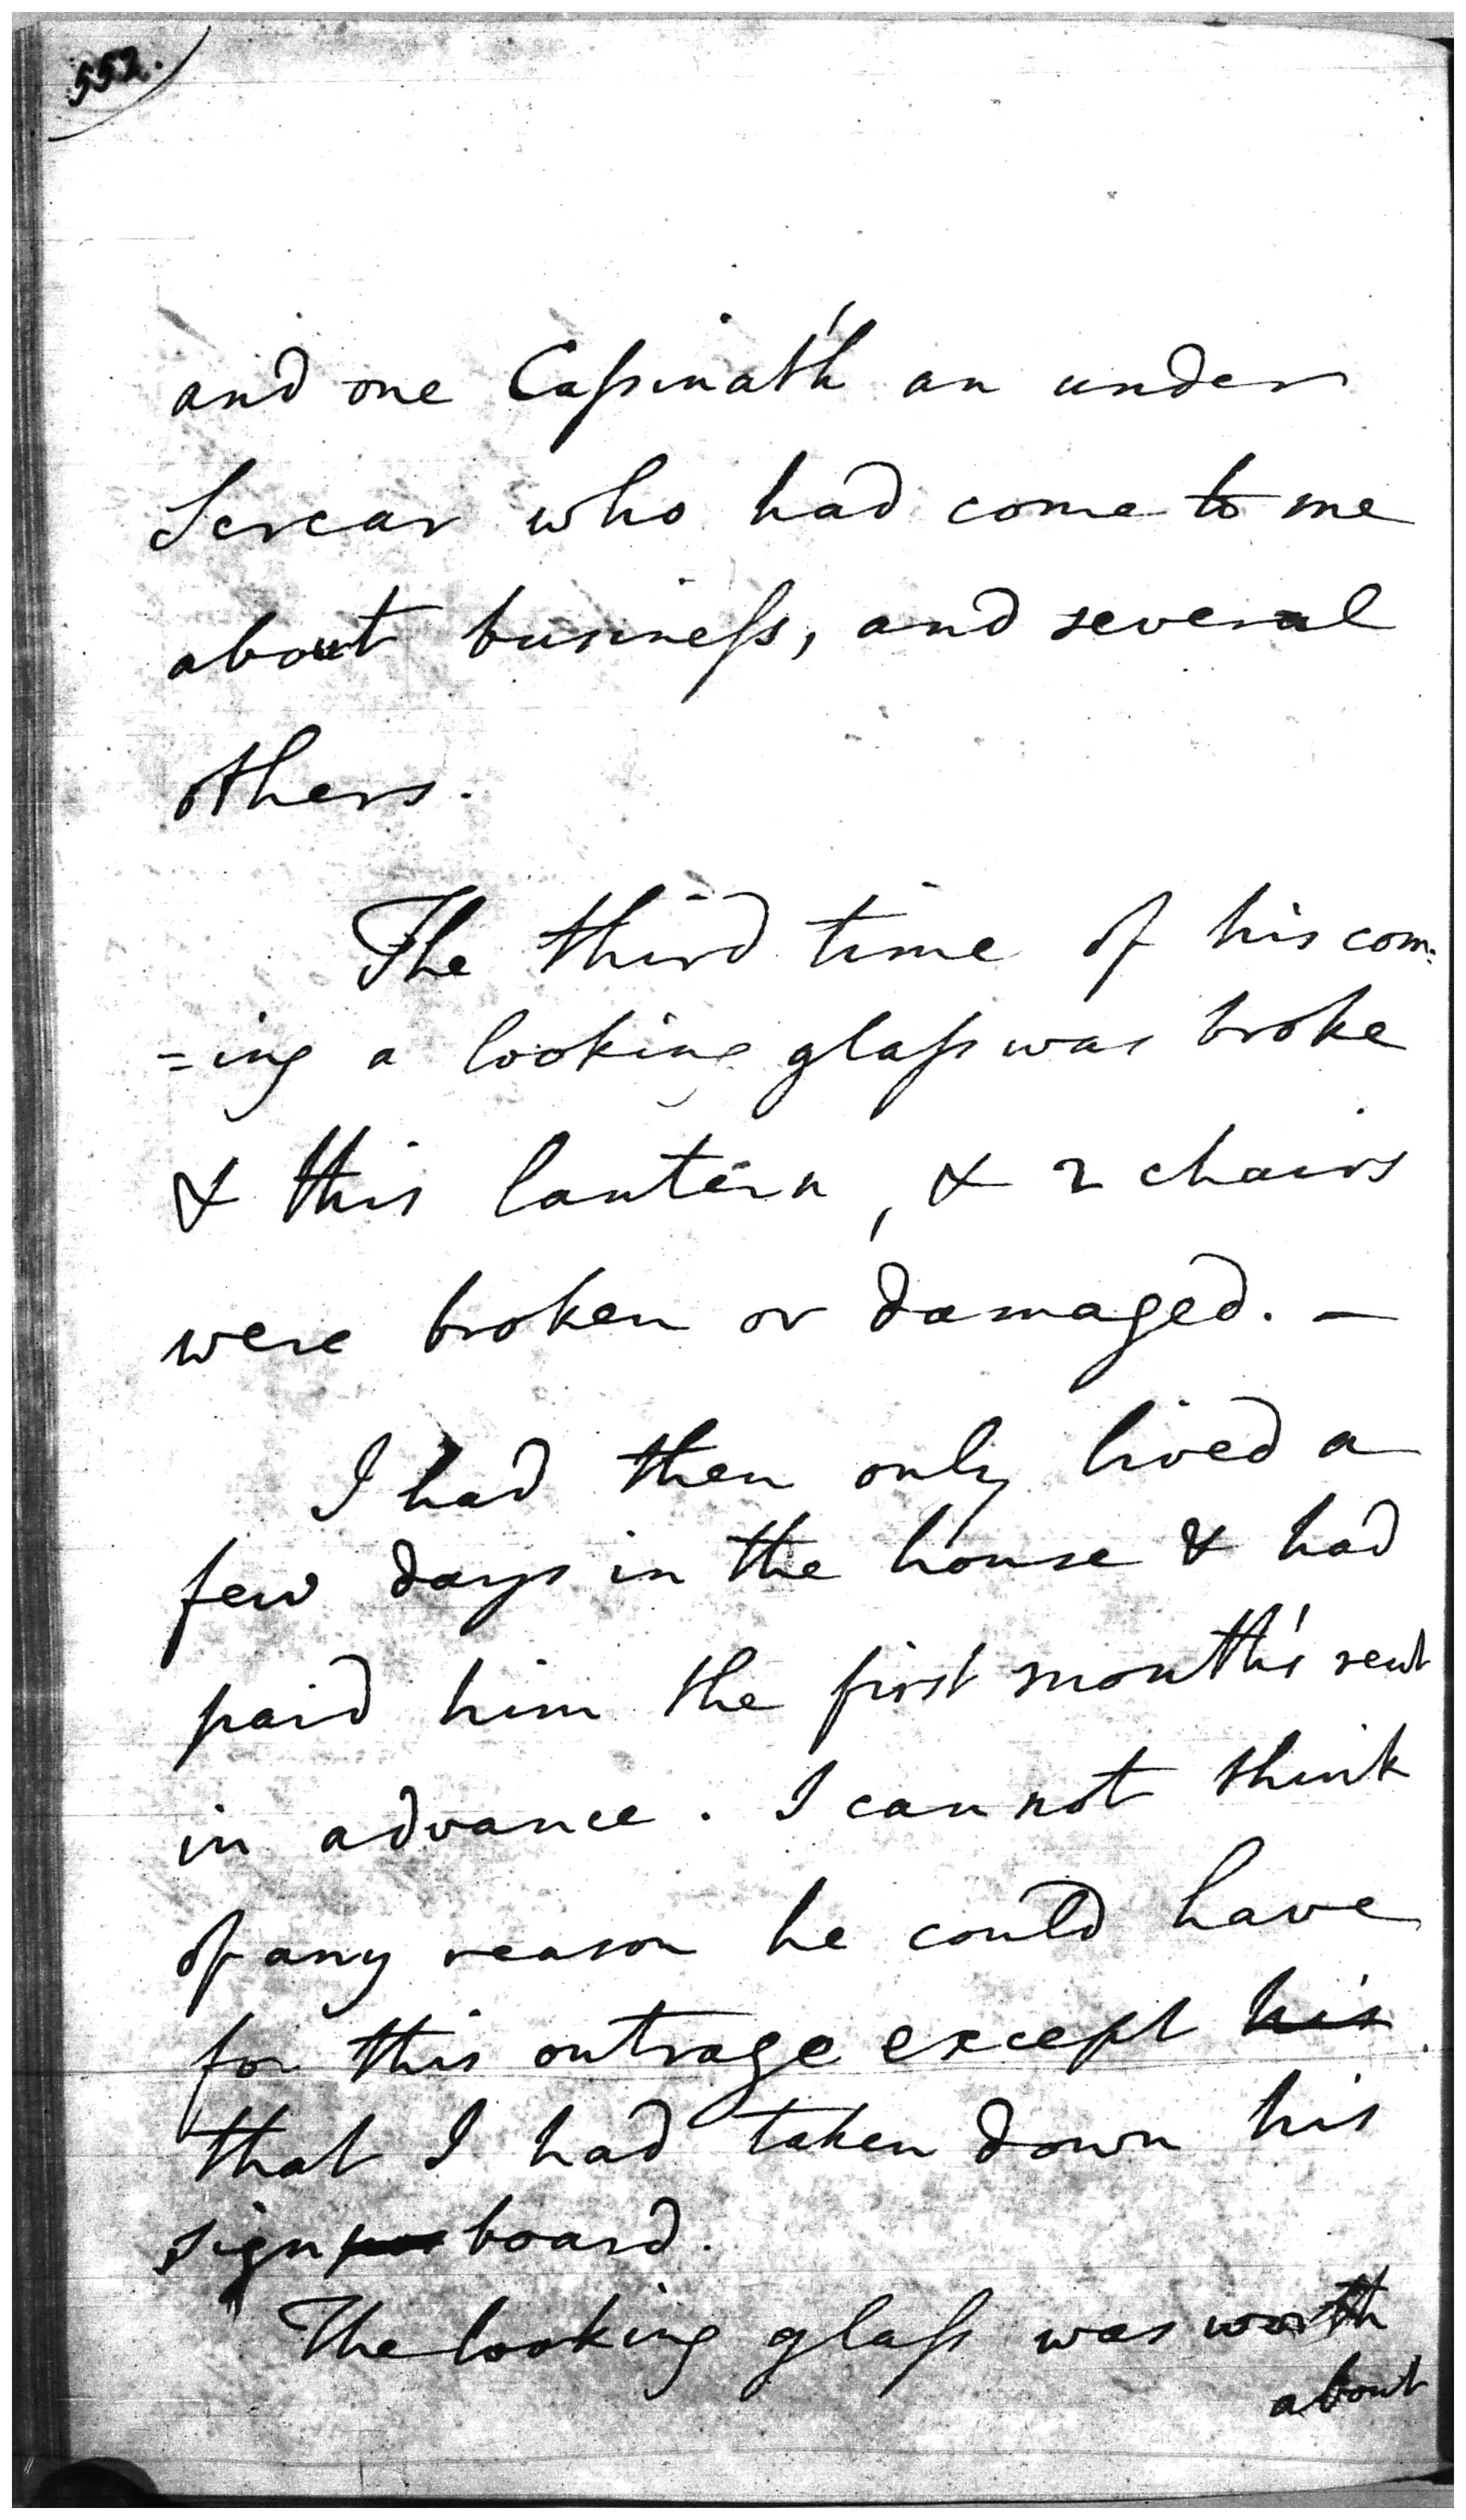 552.
and one Cassinath an under
Sercar who had come to me
about business, and several
others.
The third time of his com=
=ing a looking glass was broke
& this lantern, & 2 chairs
were broken or damaged. —
I had then only lived a
few days in the house & had
paid him the first month's rent
in advance. I cannot think
of any reason he could have
for this outrage except his
that I had taken down his
sign board.
The looking glass was worth
about